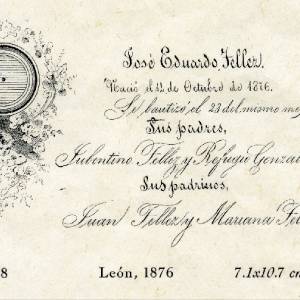 José Eduardo Tellez.
Nació el 12 de Octubre de 1876.
Se bautizó el 23 del mismo me
Sus padres,
Jubentino Tellez y Refugio Gonza
Sus padrinos,
Juan Tellez y Mariana Te
8 León, 1876 7.1x10.7 c